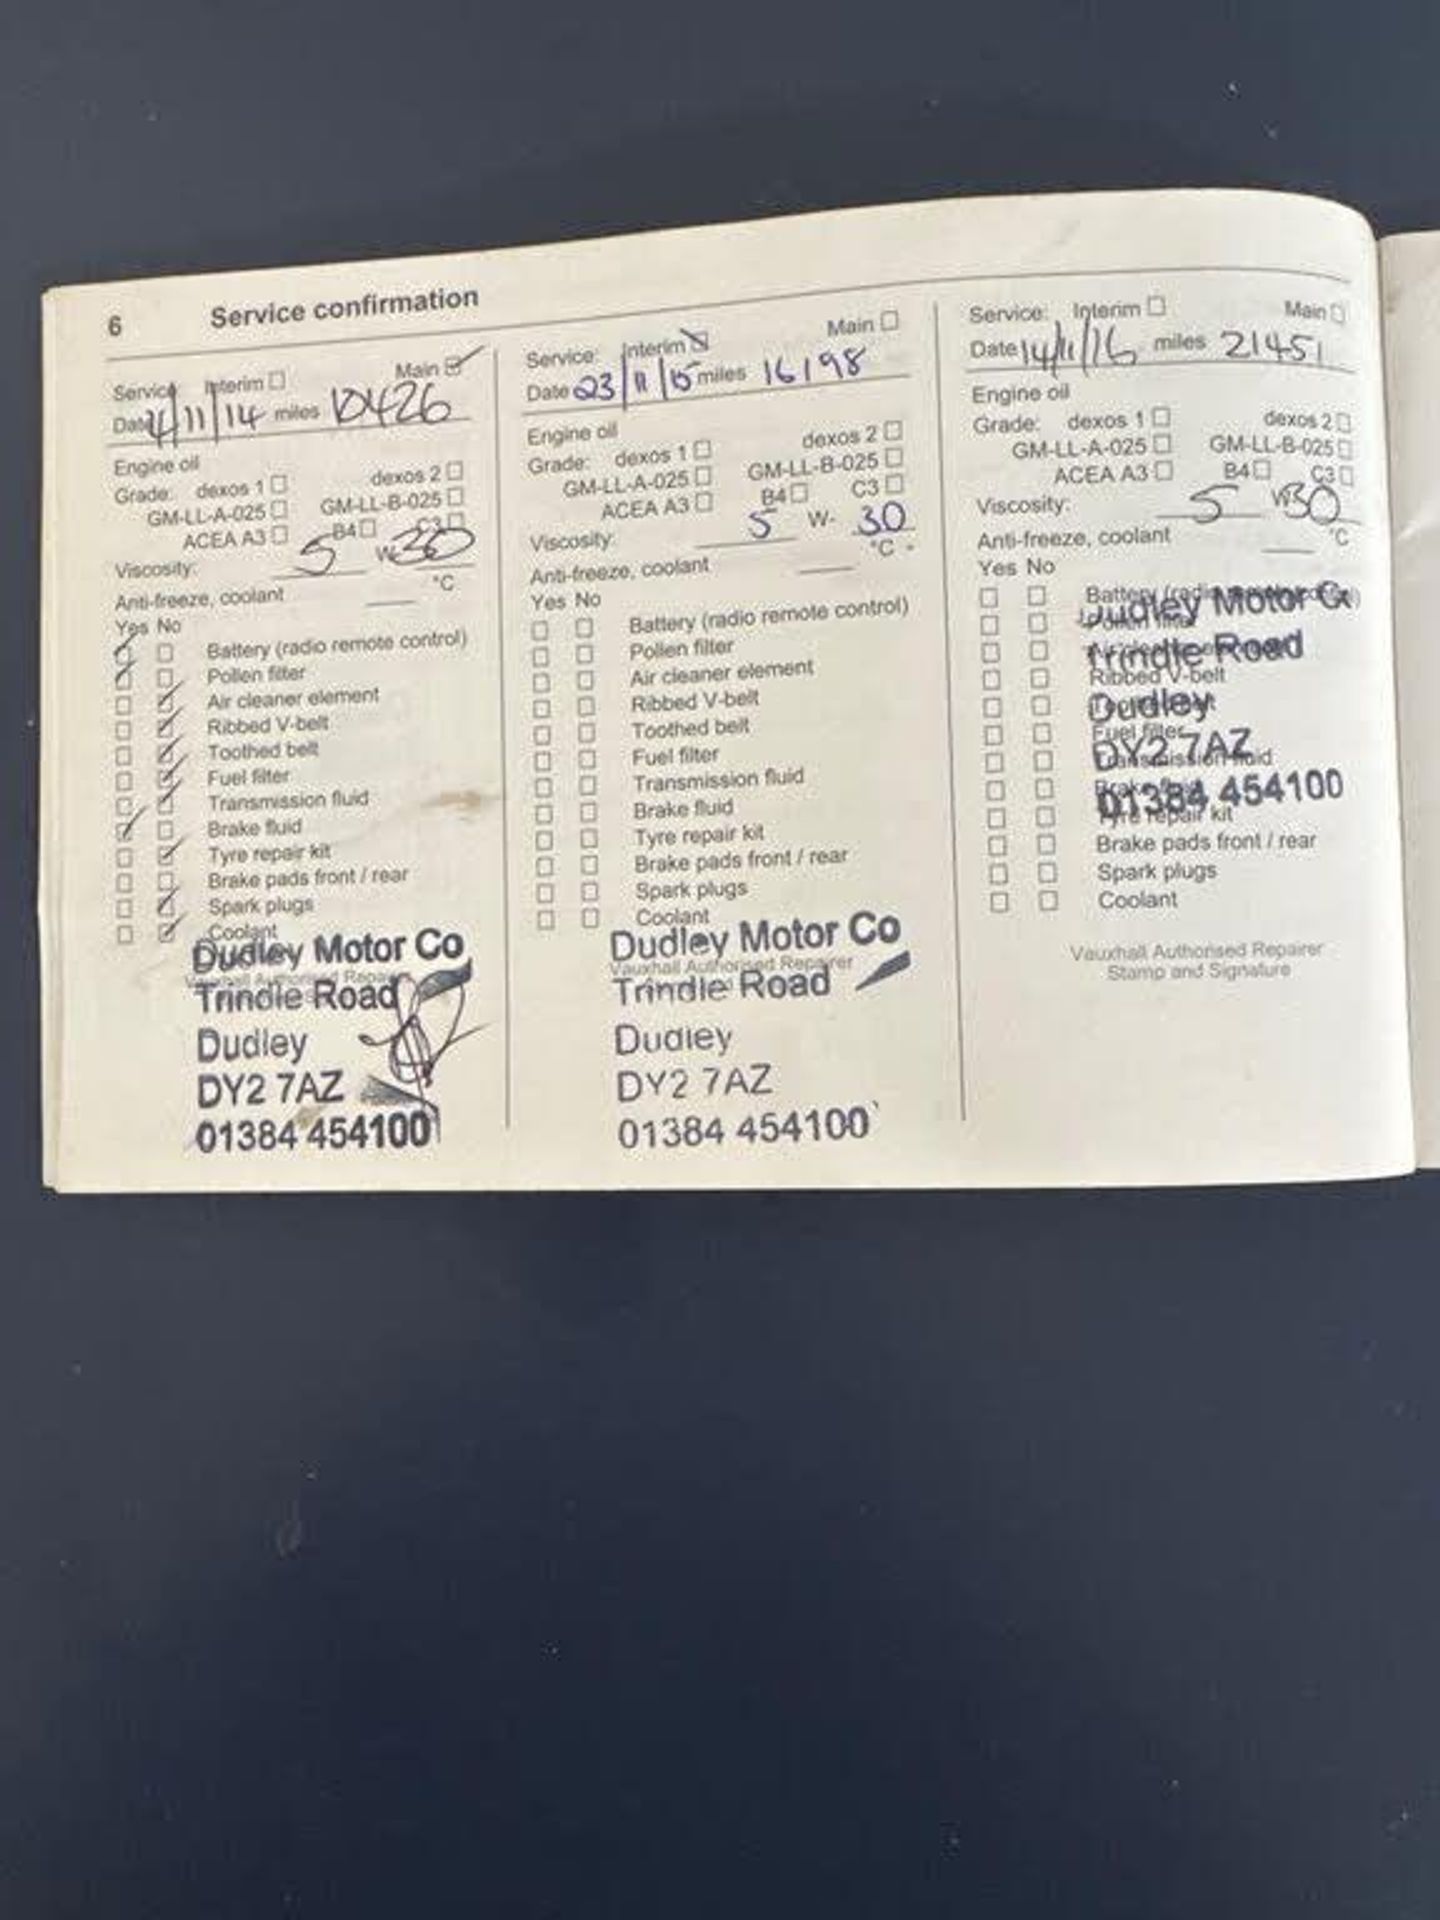 6 Service confirmation
Service Interim Main
Date 4/11/14 miles 10426
Engine oil
Grade: dexos 1 dexos 2
GM-LL-A-025 GM-LL-B-025
ACEA A3 B4 C3
Viscosity: 5 W- 30
Anti-freeze, coolant °C
Yes No
Battery (radio remote control)
Pollen filter
Air cleaner element
Ribbed V-belt
Toothed belt
Fuel filter
Transmission fluid
Brake fluid
Tyre repair kit
Brake pads front / rear
Spark plugs
Coolant
Dudley Motor Co
Vauxhall Authorised Repairer
Trindle Road
Dudley
DY2 7AZ
01384 454100
Service: Interim Main
Date 23/11/15 miles 16198
Engine oil
Grade: dexos 1 dexos 2
GM-LL-A-025 GM-LL-B-025
ACEA A3 B4 C3
Viscosity: 5 W- 30
Anti-freeze, coolant °C
Yes No
Battery (radio remote control)
Pollen filter
Air cleaner element
Ribbed V-belt
Toothed belt
Fuel filter
Transmission fluid
Brake fluid
Tyre repair kit
Brake pads front / rear
Spark plugs
Coolant
Dudley Motor Co
Vauxhall Authorised Repairer
Trindle Road
Dudley
DY2 7AZ
01384 454100
Service: Interim Main
Date 14/11/16 miles 21451
Engine oil
Grade: dexos 1 dexos 2
GM-LL-A-025 GM-LL-B-025
ACEA A3 B4 C3
Viscosity: 5 W- 30
Anti-freeze, coolant °C
Yes No
Battery (radio remote control)
Dudley Motor C
Pollen filter
Trindle Road
Ribbed V-belt
Dudley
Fuel filter
DY2 7AZ
Transmission fluid
01384 454100
Tyre repair kit
Brake pads front / rear
Spark plugs
Coolant
Vauxhall Authorised Repairer
Stamp and Signature